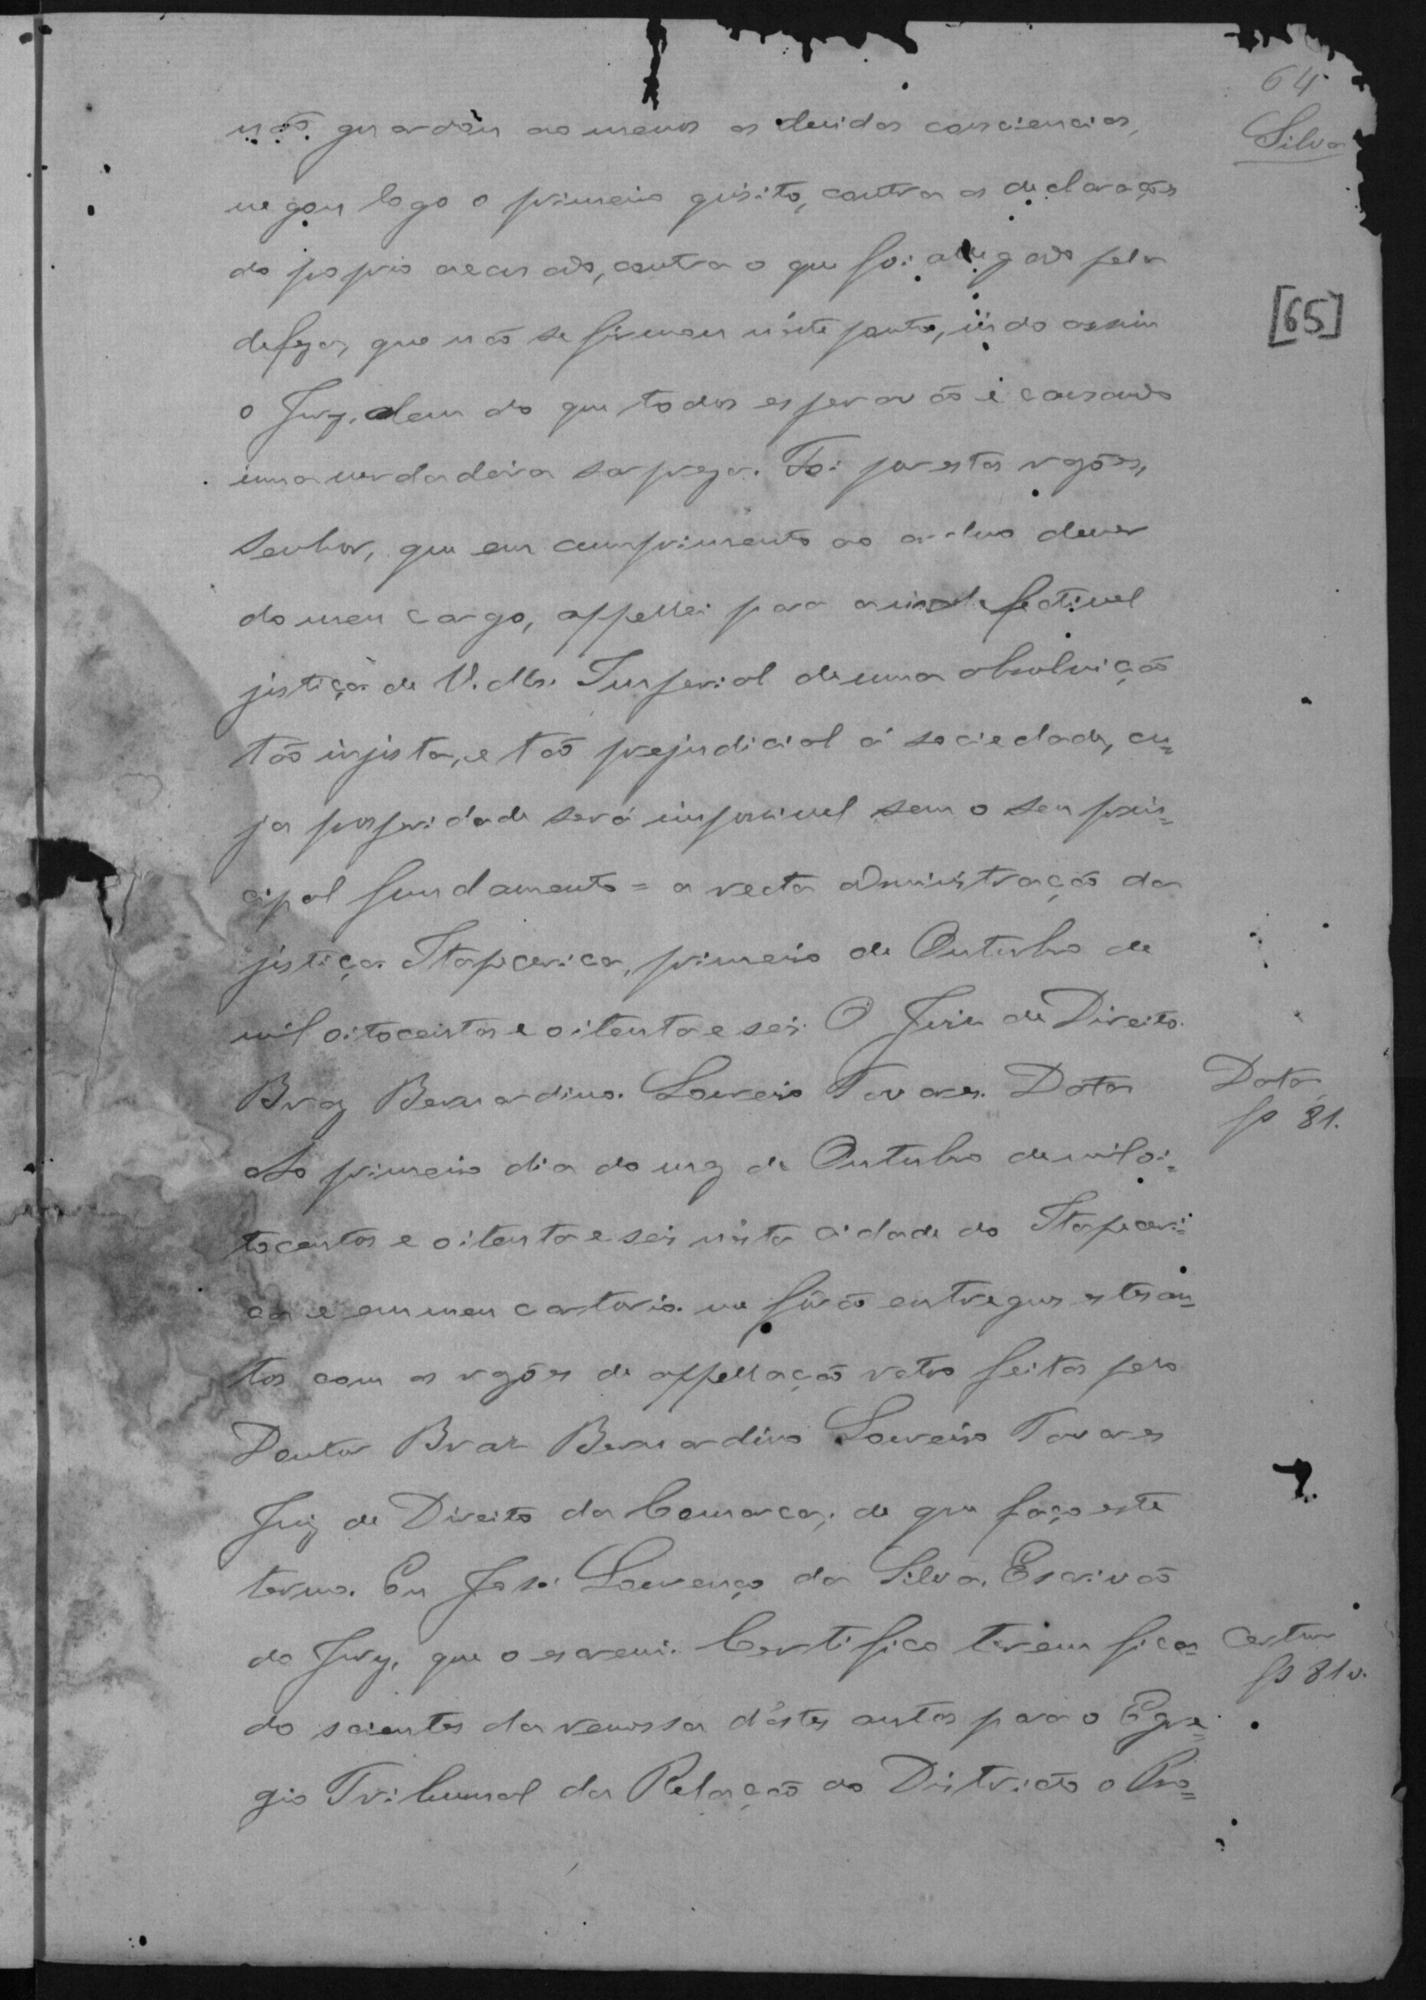 64
Silva
não guardou ao menos as devidas consciencias,
negou logo o primeiro quisito, contra as declarações
do proprio accusado, contra o que foi allegado pela
defeza, que não se firmou n'este ponto, indo assim
o Jury, alem do que todos esperavão e causando
uma verdadeira sorpreza. Foi por estas rasões,
Senhor, que em cumprimento ao arduo dever
do meu cargo, appellei para a indefectivel
justiça de V. Mde. Imperial de uma absolvição
tão injusta, e tão prejudicial á sociedade, cu=
ja prosperidade será impossivel sem o seu prin=
cipal fundamento = a recta administração da
justiça. Itapecerica, primeiro de Outubro de
mil oitocentos e oitenta e seis. O Juiz de Direito.
Braz Bernardino. Loureiro Tavares. Data
Data
fs 81.
Ao primeiro dia do mez de Outubro de mil oi=
tocentos e oitenta e seis nesta cidade do Itapeceri=
ca e em meu cartorio me fôrão entregues estes au=
tos com as rasões de appellação retro feitas pelo
Doutor Braz Bernardino Loureiro Tavares
Juiz de Direito da Comarca; de que faço este
termo. Eu José Lourenço da Silva, Escrivão
do Jury, que o escrevi. Certifico terem fica=
fs 81v.
do scientes da remessa d'estes autos para o Egre=
gio Tribunal da Relação do Districto o Pro=
[65]